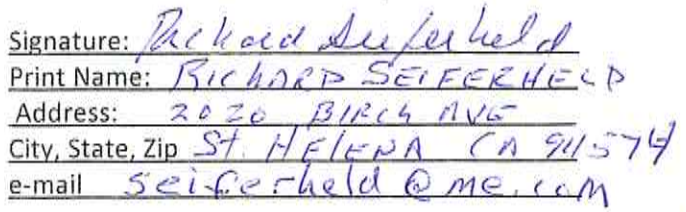 Signature: Richard Seiferheld
Print Name: RICHARD SEIFERHELD
Address: 2020 BIRCH AVE
City, State, Zip St. HELENA CA 94574
e-mail seiferheld@me.com